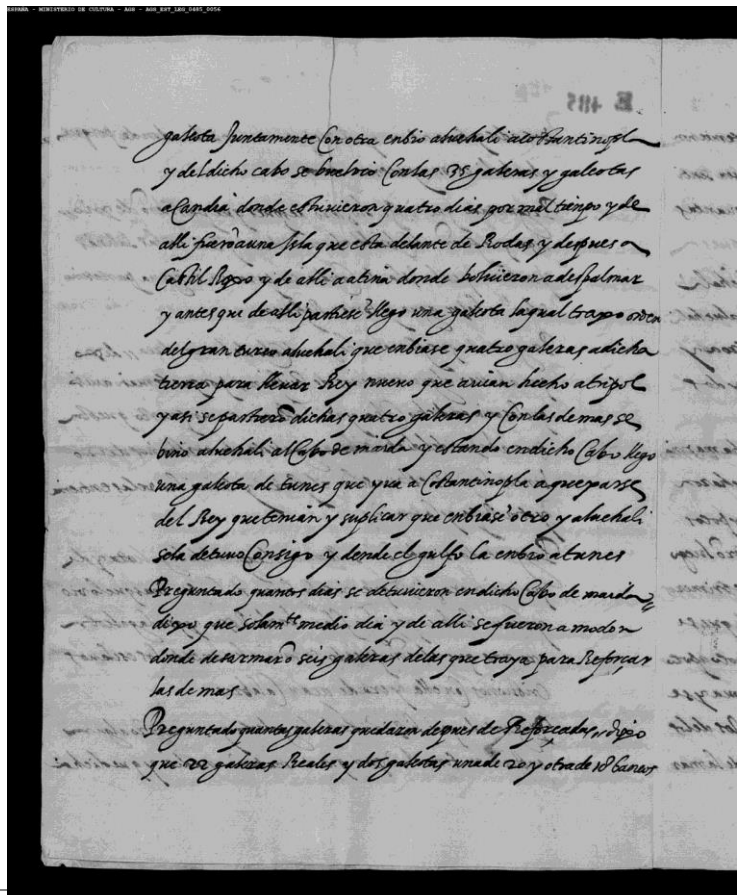 ESPAÑA - MINISTERIO DE CULTURA - AGS - AGS_EST_LEG_0485_0056
E 485
galeota Juntamente Con otra enbio aluchali a costantinopl
y del dicho cabo se bolvio Con las 35 galeras y galeotas
a Candia donde estuvieron quatro dias por mal tienpo y de
alli fuerō a una Isla que esta delante de Rodas y despues a
Castil Roxo y de alli a atina donde bolvieron a despalmar
y antes que de alli partiese llego una galeota la qual traxo orden
del gran turco aluchali que enbiase quatro galeras a dicha
tierra para llevar Rey nuevo que avian hecho a tripol
y asi se partierō dichas quatro galeras y Con las demas se
bino aluchali al Cabo de maida y estando en dicho Cabo llego
una galeota de tunes que yva a Costantinopla a quexarse
del Rey que tenian y suplicar que enbiase otro y aluchali
se la detuvo Consigo y dende el gulfo la enbio a tunes
Preguntado quantos dias se detuvieron en dicho Cabo de maida
dixo que solamte medio dia y de alli se fueron a modon
donde desarmarō seis galeras de las que traya para Reforçar
las demas
Preguntado quantas galeras quedaron depues de Reforcadas, dixo
que 22 galeras Reales y dos galeotas una de 20 y otra de 18 bancos